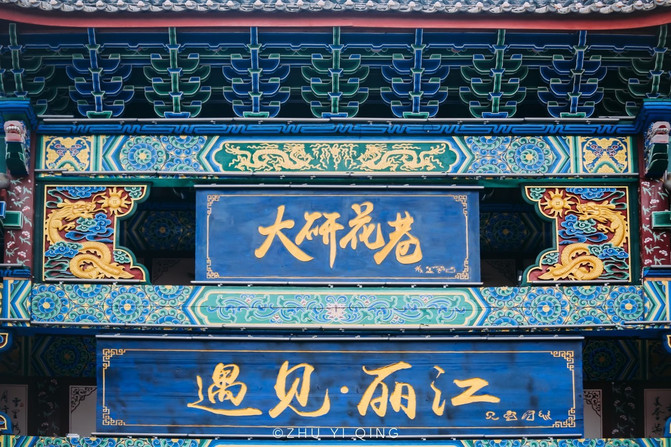 大研花巷
遇见·丽江
©ZHU YI QING